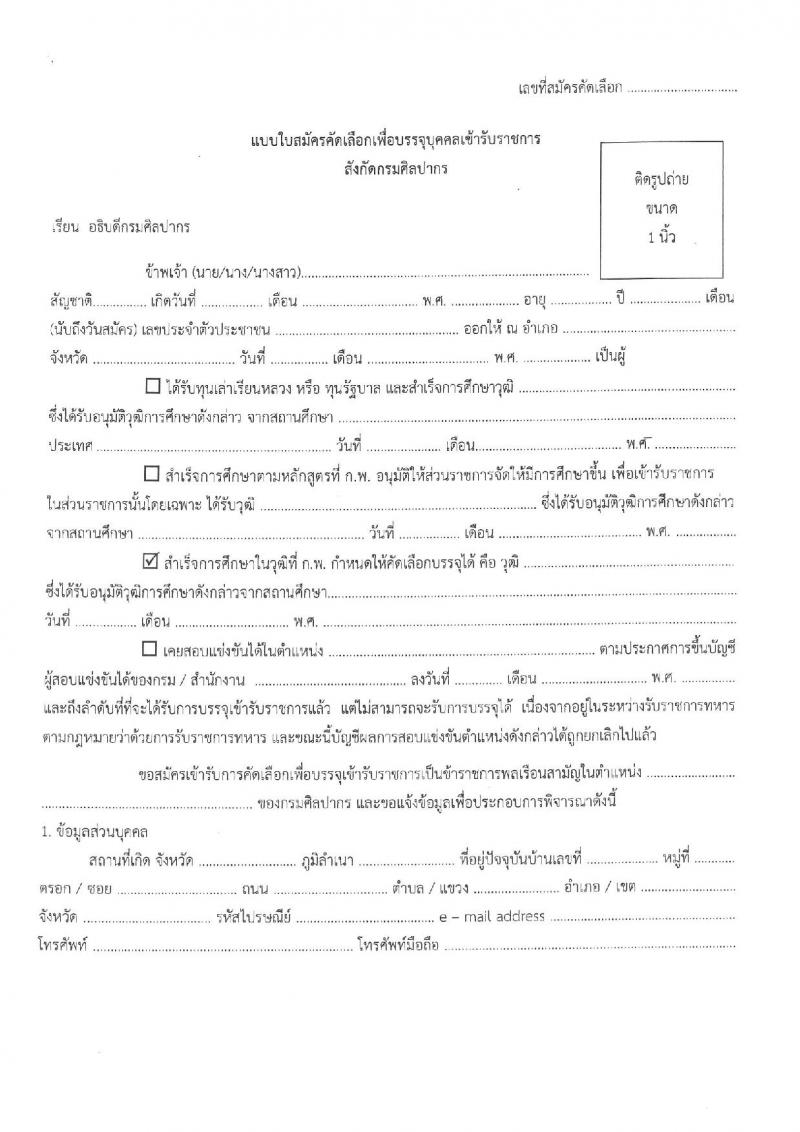 เลขที่สมัครคัดเลือก ................................
แบบใบสมัครคัดเลือกเพื่อบรรจุบุคคลเข้ารับราชการ
สังกัดกรมศิลปากร
ติดรูปถ่าย
ขนาด
1 นิ้ว
เรียน อธิบดีกรมศิลปากร
ข้าพเจ้า (นาย/นาง/นางสาว)................................................................
สัญชาติ............... เกิดวันที่ ................ เดือน ............................... พ.ศ. ................... อายุ ................. ปี .................... เดือน
(นับถึงวันสมัคร) เลขประจำตัวประชาชน .................................................... ออกให้ ณ อำเภอ ................................................
จังหวัด ........................................ วันที่ ................ เดือน .................................. พ.ศ. ................... เป็นผู้
☐ ได้รับทุนเล่าเรียนหลวง หรือ ทุนรัฐบาล และสำเร็จการศึกษาวุฒิ ............................................................
ซึ่งได้รับอนุมัติวุฒิการศึกษาดังกล่าว จากสถานศึกษา ................................................................................
ประเทศ ................................................................ วันที่ .................... เดือน......................................... พ.ศ. .......................
☐ สำเร็จการศึกษาตามหลักสูตรที่ ก.พ. อนุมัติให้ส่วนราชการจัดให้มีการศึกษาขึ้น เพื่อเข้ารับราชการ
ในส่วนราชการนั้นโดยเฉพาะ ได้รับวุฒิ ................................................................................ ซึ่งได้รับอนุมัติวุฒิการศึกษาดังกล่าว
จากสถานศึกษา ................................................................ วันที่ ................. เดือน ........................................ พ.ศ. .................
☑ สำเร็จการศึกษาในวุฒิที่ ก.พ. กำหนดให้คัดเลือกบรรจุได้ คือ วุฒิ ............................................................
ซึ่งได้รับอนุมัติวุฒิการศึกษาดังกล่าวจากสถานศึกษา................................................................................
วันที่ ................. เดือน ......................... พ.ศ. ................................................................................
☐ เคยสอบแข่งขันได้ในตำแหน่ง ............................................................................ ตามประกาศการขึ้นบัญชี
ผู้สอบแข่งขันได้ของกรม / สำนักงาน ............................................ ลงวันที่ .............. เดือน ............................... พ.ศ. ................
และถึงลำดับที่ที่จะได้รับการบรรจุเข้ารับราชการแล้ว แต่ไม่สามารถจะรับการบรรจุได้ เนื่องจากอยู่ในระหว่างรับราชการทหาร
ตามกฎหมายว่าด้วยการรับราชการทหาร และขณะนี้บัญชีผลการสอบแข่งขันตำแหน่งดังกล่าวได้ถูกยกเลิกไปแล้ว
ขอสมัครเข้ารับการคัดเลือกเพื่อบรรจุเข้ารับราชการเป็นข้าราชการพลเรือนสามัญในตำแหน่ง .........................
............................................................ ของกรมศิลปากร และขอแจ้งข้อมูลเพื่อประกอบการพิจารณาดังนี้
1. ข้อมูลส่วนบุคคล
สถานที่เกิด จังหวัด ........................... ภูมิลำเนา ........................... ที่อยู่ปัจจุบันบ้านเลขที่ .................... หมู่ที่ ............
ตรอก / ซอย .................................. ถนน ................................ ตำบล / แขวง ........................ อำเภอ / เขต ...........................
จังหวัด .................................... รหัสไปรษณีย์ ........................................ e – mail address ....................................................
โทรศัพท์ ........................................................................... โทรศัพท์มือถือ ................................................................................